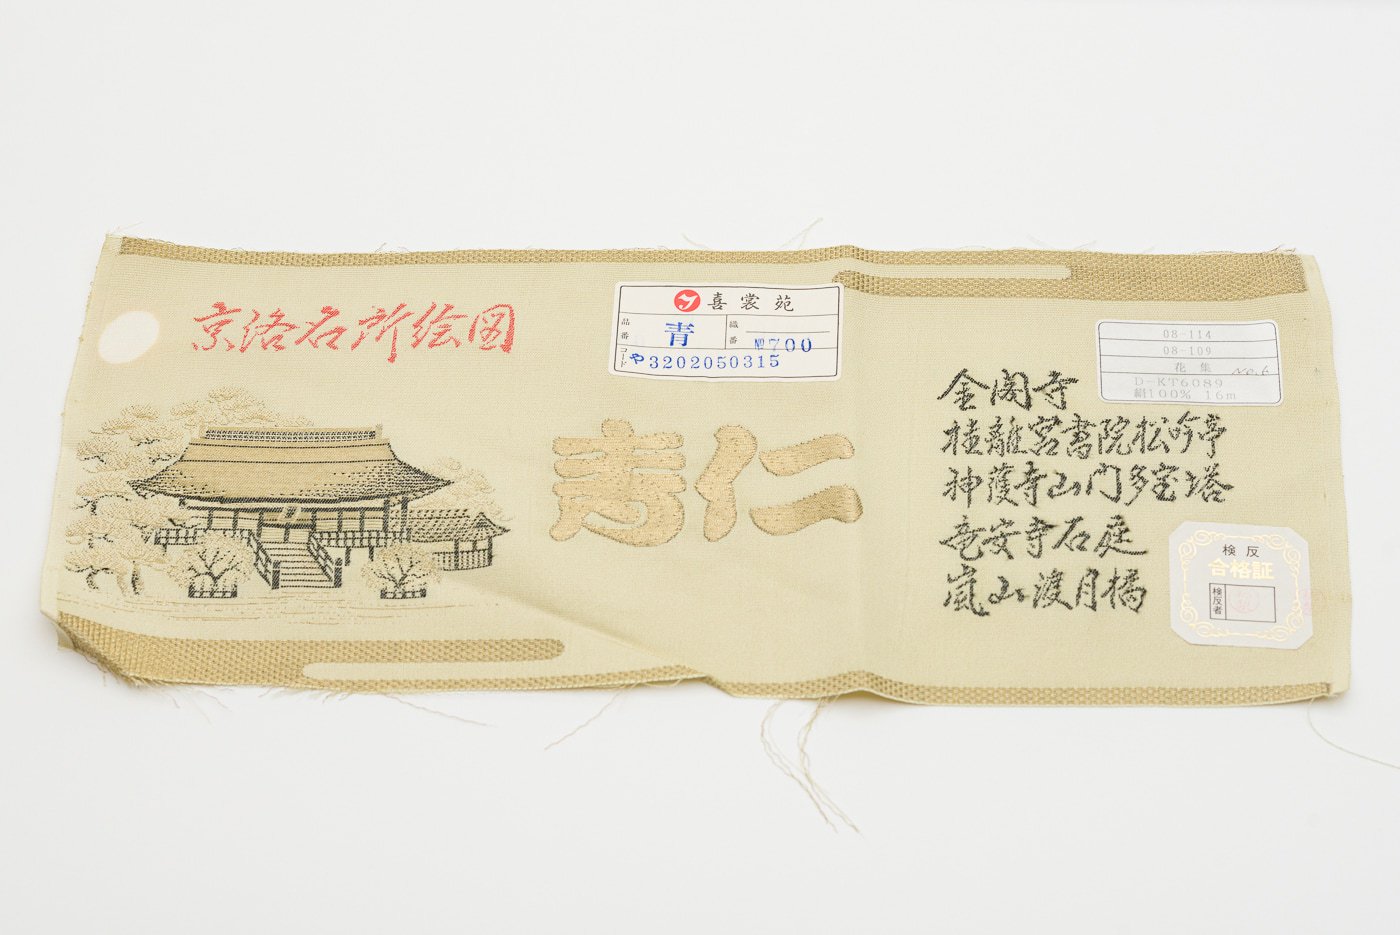 京洛名所絵図
喜裳苑
品番 青 織番 №700
コード や3202050315
青仁
08-114
08-109
花集 No.6
D-KT6089
絹100% 16m
金閣寺
桂離宮書院松吟亭
神護寺山門多宝塔
竜安寺石庭
嵐山渡月橋
検反
合格証
検反者